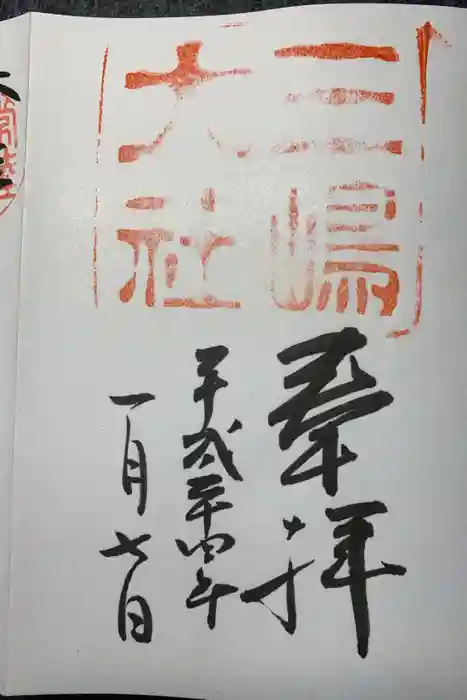 三嶋
大社
奉拝
平成二十四年
一月七日